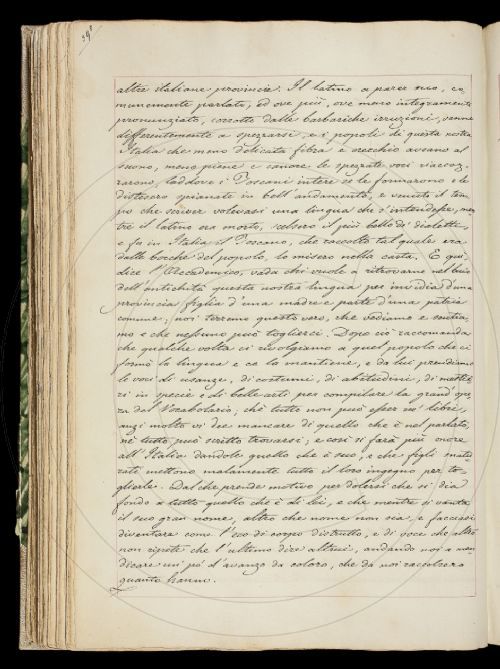 398
altre italiane provincie. Il latino a parer suo, co
munemente parlato, ed ove più, ove meno integramente
pronunziato, corrotto dalle barbariche irruzioni, venne
differentemente a spezzarsi, e i popoli di questa nostra
Italia che meno delicata fibra e orecchio aveano al
suono, meno piene e canore le spezzate voci raccoz-
zarono, laddove i Toscani intere ce le formarono e le
distesero spianate in bell'andamento, e venuto il tem
po che scriver volevasi una lingua che s'intendesse, men
tre il latino era morto, scelsero il più bello di dialetti,
e fu in Italia il Toscano, che raccolto tal quale era
dalle bocche del popolo, lo misero nella carta. E qui,
dice l'Accademico, vada chi vuole a ritrovarne nel buio
dell'antichità questa nostra lingua per invidia d'una
provincia figlia d'una madre e parte d'una patria
comune; noi terremo questo vero, che vediamo e sentia
mo e che nessuno può toglierci. Dopo ciò raccomanda
che qualche volta ci rivolgiamo a quel popolo che ci
formò la lingua e ce la mantiene, e da lui prendiamo
le voci di usanze, di costumi, di abitudini, di mestie
ri in specie e di belle arti per compilare la grand'ope
ra del Vocabolario, chè tutto non può esser ne' libri,
anzi molto vi dee mancare di quello che è nel parlato,
nè tutto può scritto trovarsi; e così si farà più onore
all'Italia dandole quello che è suo, e che figli snatu
rati mettono malamente tutto il loro ingegno per to
glierle. Dal che prende motivo per dolersi che si dia
fondo a tutto quello che è di lei, e che mentre si vanta
il suo gran nome, altro che nome non sia, e facciasi
diventare come l'eco di corpo distrutto, e di voce che altro
non ripete che l'ultimo dire altrui, andando noi a men
dicare un po' d'avanzo da coloro, che da noi raccolsero
quanto hanno.